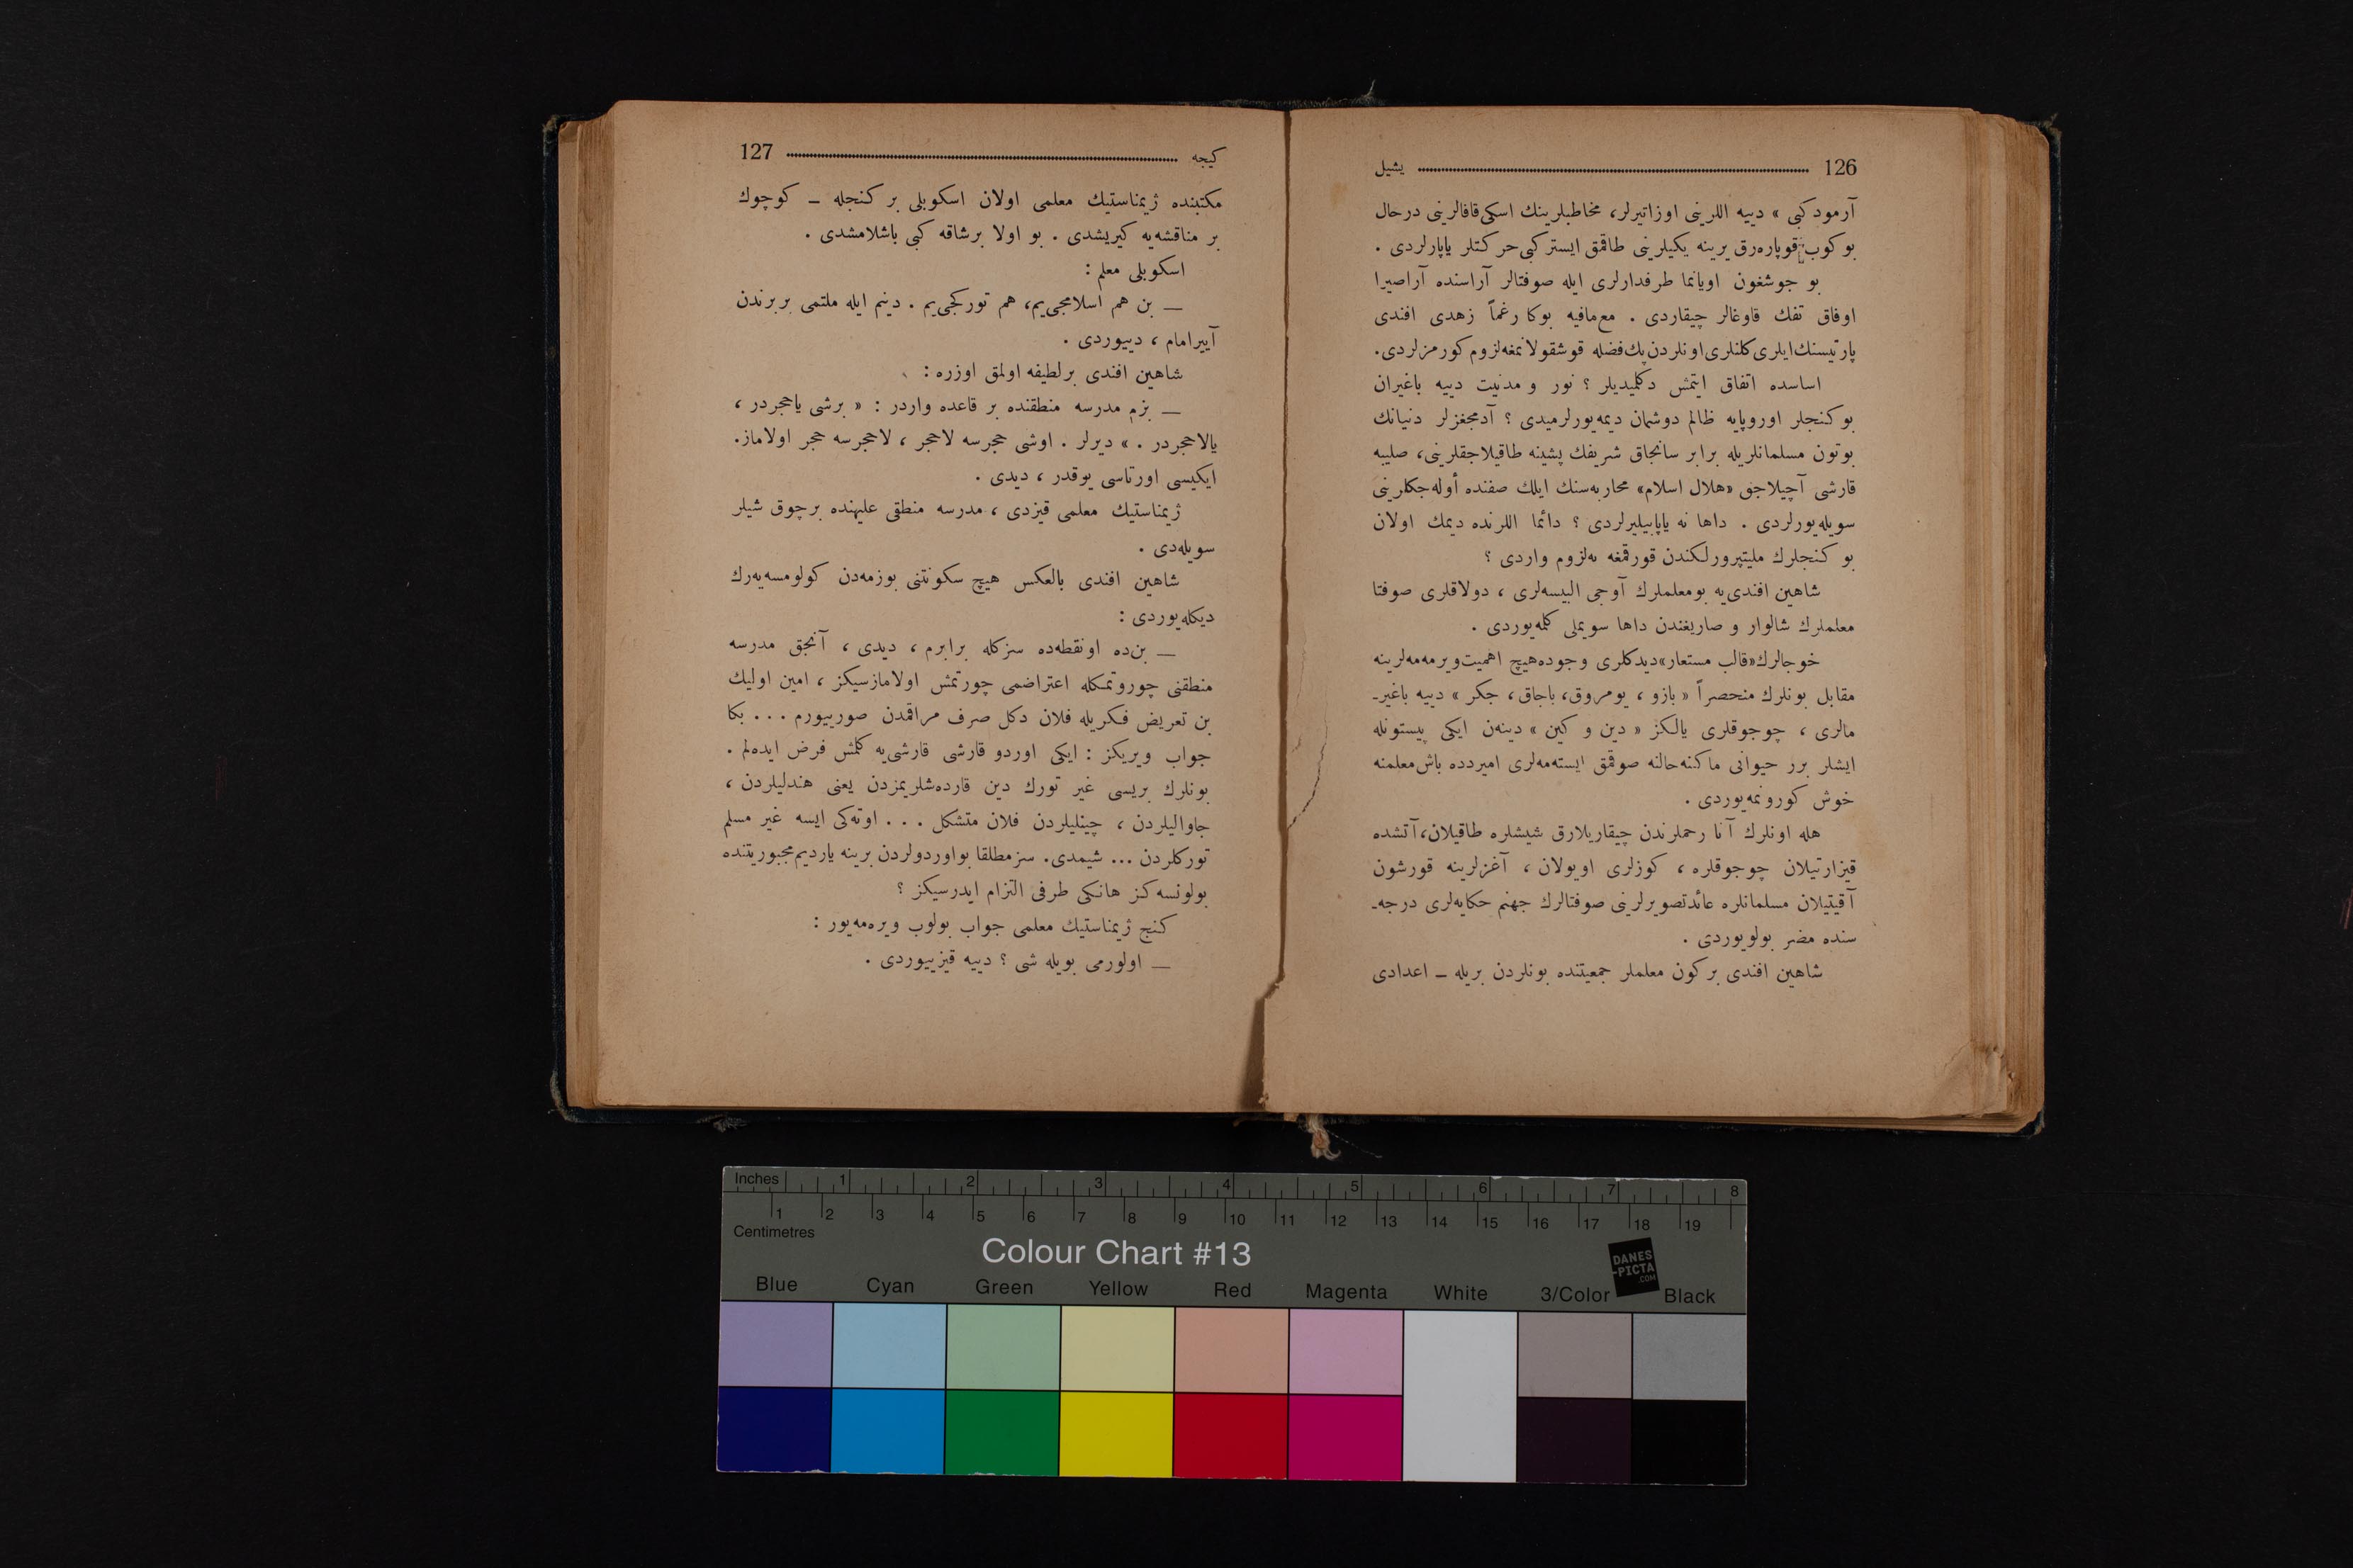 126 یشیل
آرمود كبی » دییه اللرینی اوزاتیرلر، مخاطبلرینك اسكی قافالرینی درحال
بوكوب قوپاره‌رق یرینه یكیلرینی طاقمق ایستر كبی حركتلر یاپارلردی .
بو جوشغون اویانما طرفدارلری ایله صوفتالر آراسنده آراصیرا
اوفاق تفك قاوغالر چیقاردی . مع‌مافیه بوكا رغماً زهدی افندی
پارتیسنك ایلری كلنلری اونلردن پك فضله قوشقولانمغه لزوم كورمزلردی.
اساسده اتفاق ایتمش دكلمیدیلر ؟ نور و مدنیت دییه باغیران
بو كنجلر اوروپایه ظالم دوشمان دیمه‌یورلرمیدی ؟ آدمجغزلر دنیانك
بوتون مسلمانلریله برابر سانجاق شریفك پشینه طاقیلاجقلرینی، صلیبه
قارشی آچیلاجق «هلال اسلام» محاربه‌سنك ایلك صفنده أوله‌جكلرینی
سویله‌یورلردی . داها نه یاپابیلیرلردی ؟ دائما اللرنده دیمك اولان
بو كنجلرك ملیتپرورلكندن قورقمغه نه‌لزوم واردی ؟
شاهین افندی‌یه بومعلملرك آوجی البیسه‌لری ، دولاقلری صوفتا
معلملرك شالوار و صاریغندن داها سویملی كلمه‌یوردی .
خوجالرك«قالب مستعار»دیدكلری وجوده‌هیچ اهمیت‌ویرمه‌مه‌لرینه
مقابل بونلرك منحصراً « بازو ، یومروق، باجاق، جكر » دییه باغیر-
مالری ، چوجوقلری یالكز « دین و كین » دینه‌ن ایكی پیستونله
ایشلر برر حیوانی ماكنه‌حالنه صوقمق ایسته‌مه‌لری امیردده باش‌معلمنه
خوش كورونمه‌یوردی .
هله اونلرك آنا رحملرندن چیقاریلارق شیشلره طاقیلان،آتشده
قیزارتیلان چوجوقلره ، كوزلری اویولان ، آغزلرینه قورشون
آقیتیلان مسلمانلره عائدتصویرلرینی صوفتالرك جهنم حكایه‌لری درجه-
سنده مضر بولویوردی .
شاهین افندی بركون معلملر جمعیتنده بونلردن بریله ــ اعدادی
كیجه 127
مكتبنده ژیمناستیك معلمی اولان اسكوبلی بر كنجله ــ كوچوك
بر مناقشه‌یه كیریشدی . بو اولا برشاقه كبی باشلامشدی .
اسكوبلی معلم :
ــ بن هم اسلامجی‌یم، هم توركجی‌یم . دینم ایله ملتمی بربرندن
آییرامام ، دییوردی .
شاهین افندی برلطیفه اولمق اوزره :
ــ بزم مدرسه منطقنده بر قاعده واردر : « برشی یاحجردر ،
یالاحجردر . » دیرلر . اوشی حجرسه لاحجر ، لاحجرسه حجر اولاماز.
ایكیسی اورتاسی یوقدر ، دیدی .
ژیمناستیك معلمی قیزدی ، مدرسه منطقی علیهنده برچوق شیلر
سویله‌دی .
شاهین افندی بالعكس هیچ سكونتنی بوزمه‌دن كولومسه‌یه‌رك
دیكله‌یوردی :
ــ بن‌ده اونقطه‌ده سزكله برابرم ، دیدی ، آنجق مدرسه
منطقنی چوروتمكله اعتراضمی چورتمش اولامازسیكز ، امین اولیك
بن تعریض فكریله فلان دكل صرف مراقمدن صورییورم . . . بكا
جواب ویریكز : ایكی اوردو قارشی قارشی‌یه كلمش فرض ایده‌لم .
بونلرك بریسی غیر تورك دین قارده‌شلریمزدن یعنی هندلیلردن ،
جاوالیلردن ، چینلیلردن فلان متشكل . . . اوته‌كی ایسه غیر مسلم
توركلردن ... شیمدی. سز مطلقا بواوردولردن برینه یاردیم مجبوریتنده
بولونسه‌كز هانكی طرفی التزام ایدرسیكز ؟
كنج ژیمناستیك معلمی جواب بولوب ویره‌مه‌یور :
ــ اولورمی بویله شی ؟ دییه قیزییوردی .
Inches 1 2 3 4 5 6 7 8
1 2 3 4 5 6 7 8 9 10 11 12 13 14 15 16 17 18 19
Centimetres
Colour Chart #13
DANES
-PICTA
.COM
Blue Cyan Green Yellow Red Magenta White 3/Color Black